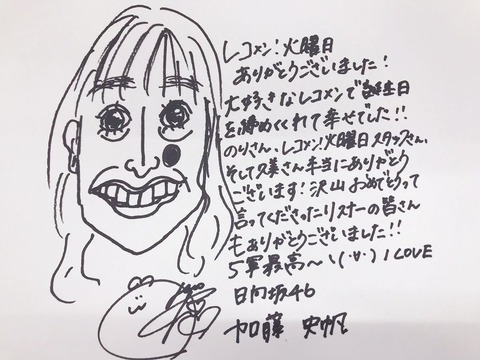 レコメン!火曜日
ありがとうございました!
大好きなレコメンで誕生日
を締めくくれて幸せでした!!
のりさん、レコメン!火曜日スタッフさん、
そして久美さん本当にありがとう
ございます!沢山おめでとうって
言ってくださったリスナーの皆さん
もありがとうございました!!
5軍最高〜ヽ(・∀・)ノ LOVE
日向坂46
加藤 史帆